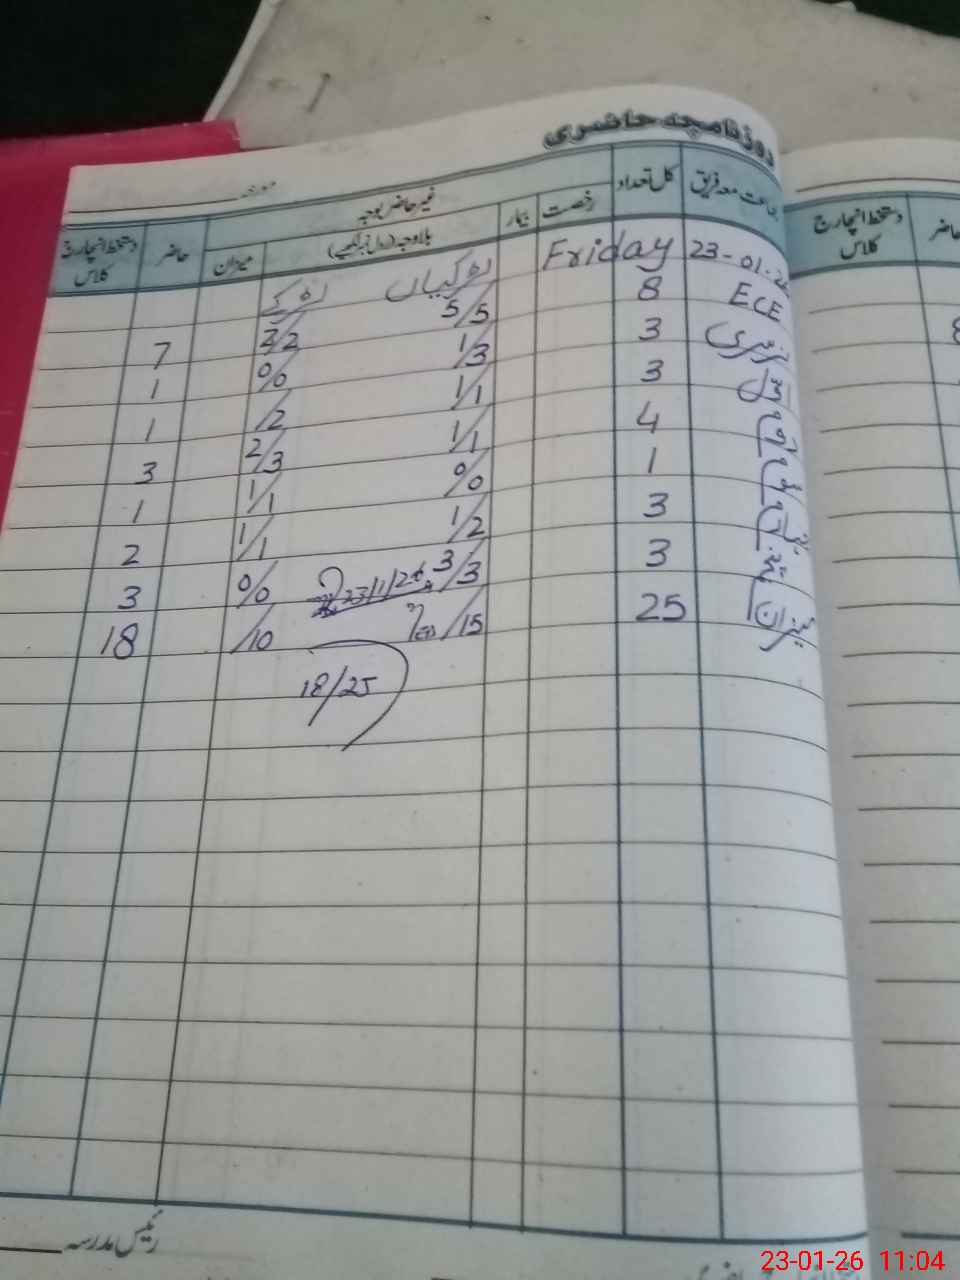 روزنامچہ حاضری
جماعت معہ فریق کل تعداد رخصت بیمار غیر حاضر بوجہ حاضر دستخط انچارج کلاس
بلاوجہ (رول نمبر لکھیے) میزان
23-01-26 Friday لڑکیاں لڑکے
ECE 8 5/5 2/2 7
نرسری 3 1/3 0/0 1
اول 3 1/1 /2 1
4 1/1 2/3 3
1 0/0 1/1 1
3 1/2 1/1 2
3 3/3 23/1/26 0/0 3
میزان 25 /15 /10 18
18/25
رئیس مدرسہ
دستخط انچارج کلاس
حاضر
8
23-01-26 11:04